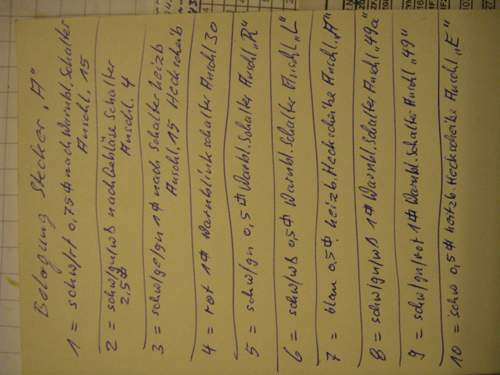 Belegung Stecker „A"
1 = schw/rt 0,75 ⌀ nach Warnbl. Schalter
Anschl. 15
2 = schw/gn/ws nach Gebläse Schalter
2,5⌀ Anschl. 4
3 = schw/ge/gn 1⌀ nach Schalter heizb
Anschl. 15 Heckscheib
4 = rot 1⌀ Warnblinkschalter Anschl 30
5 = schw/gn 0,5⌀ Warnbl. Schalter Anschl „R"
6 = schw/wß 0,5⌀ Warnbl. Schalter Anschl „L"
7 = blau 0,5⌀ heizb. Heckscheibe Anschl. „A"
8 = schw/gn/wß 1⌀ Warnbl. Schalter Anschl „49a"
9 = schw/gn/rot 1⌀ Warnbl. Schalter Anschl „49"
10 = schw 0,5⌀ heizb. Heckscheibe Anschl „E"